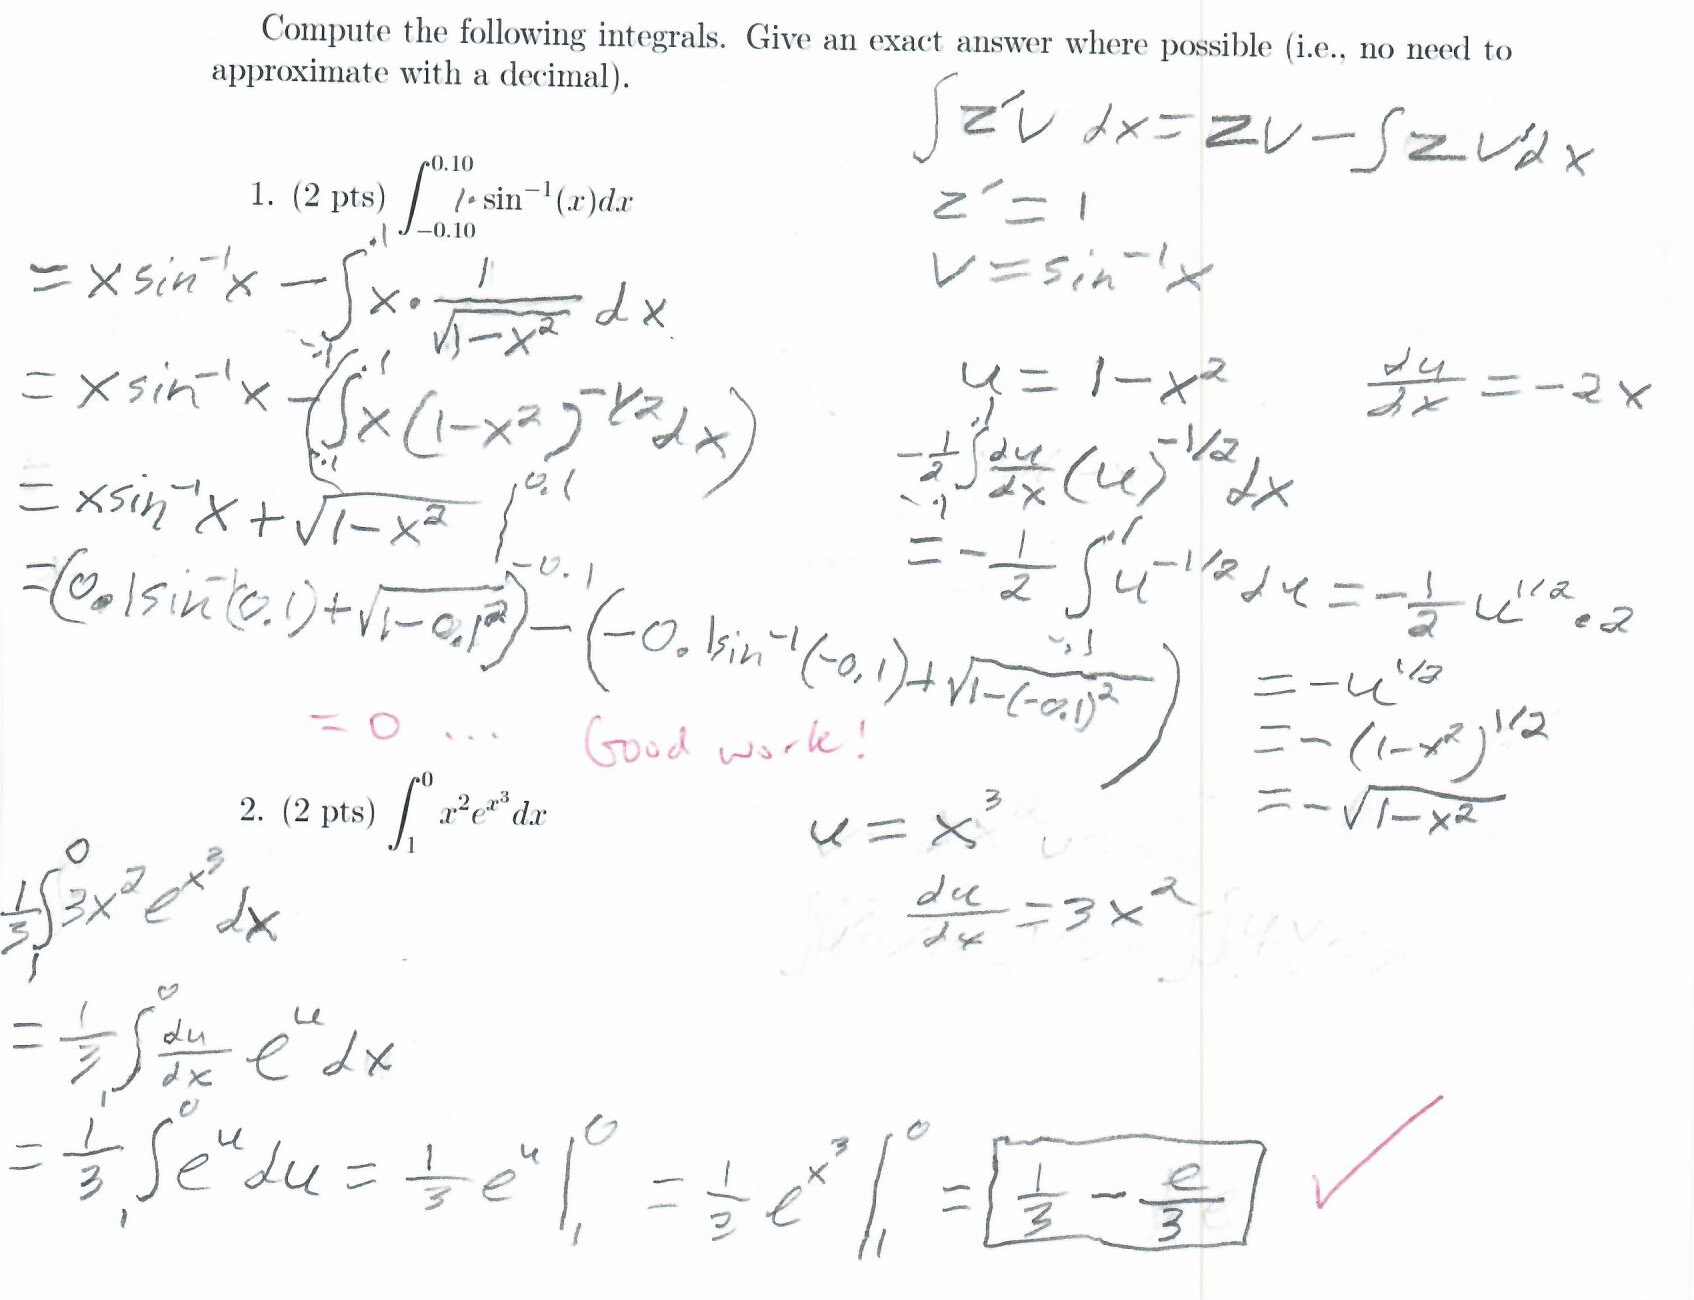 Compute the following integrals. Give an exact answer where possible (i.e., no need to
approximate with a decimal).
∫ z′v dx = zv − ∫ z v′ dx
1. (2 pts) ∫_{−0.10}^{0.10} 1· sin⁻¹(x)dx
z′ = 1
v = sin⁻¹x
= x sin⁻¹x − ∫_{-.1}^{.1} x · 1/√(1−x²) dx
= x sin⁻¹x − (∫_{-.1}^{.1} x (1−x²)^{−1/2} dx)
u = 1−x²   du/dx = −2x
−1/2 ∫_{-.1}^{.1} du/dx (u)^{−1/2} dx
= x sin⁻¹x + √(1−x²) |_{−0.1}^{0.1}
= −1/2 ∫_{-.1}^{.1} u^{−1/2} du = −1/2 u^{1/2} · 2
= (0.1 sin⁻¹(0.1) + √(1−0.1²)) − (−0.1 sin⁻¹(−0.1) + √(1−(−0.1)²))
= −u^{1/2}
= −(1−x²)^{1/2}
= −√(1−x²)
= 0 ... Good work!
2. (2 pts) ∫_1^0 x²e^{x³}dx
u = x³
du/dx = 3x²
1/3 ∫_1^0 3x² e^{x³} dx
= 1/3 ∫_1^0 du/dx e^u dx
= 1/3 ∫_1^0 e^u du = 1/3 e^u |_1^0 = 1/3 e^{x³} |_1^0 = 1/3 − e/3 ✓